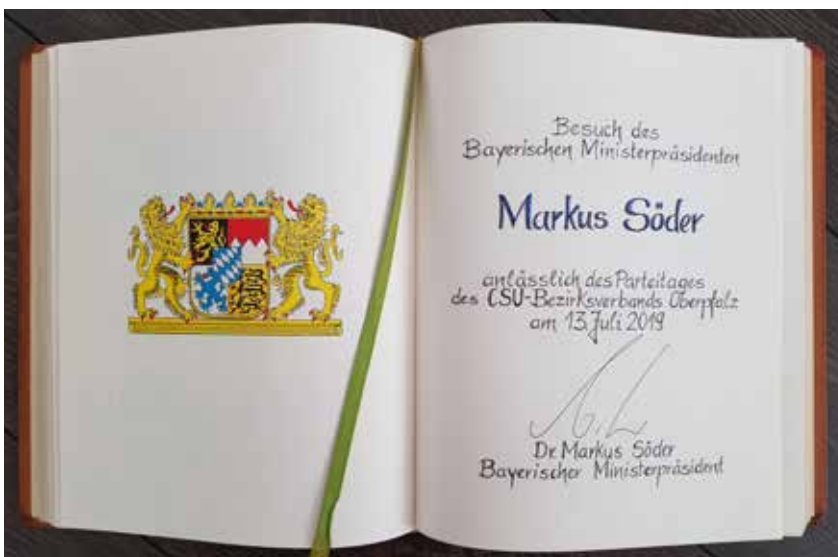 Besuch des
Bayerischen Ministerpräsidenten
Markus Söder
anlässlich des Parteitages
des CSU-Bezirksverbands Oberpfalz
am 13. Juli 2019
Dr. Markus Söder
Bayerischer Ministerpräsident